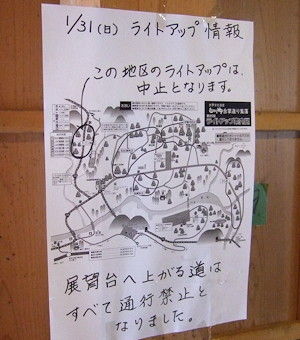 1/31(日) ライトアップ情報
この地区のライトアップは、
中止となります。
展望台へ上がる道は
すべて通行禁止と
なりました。